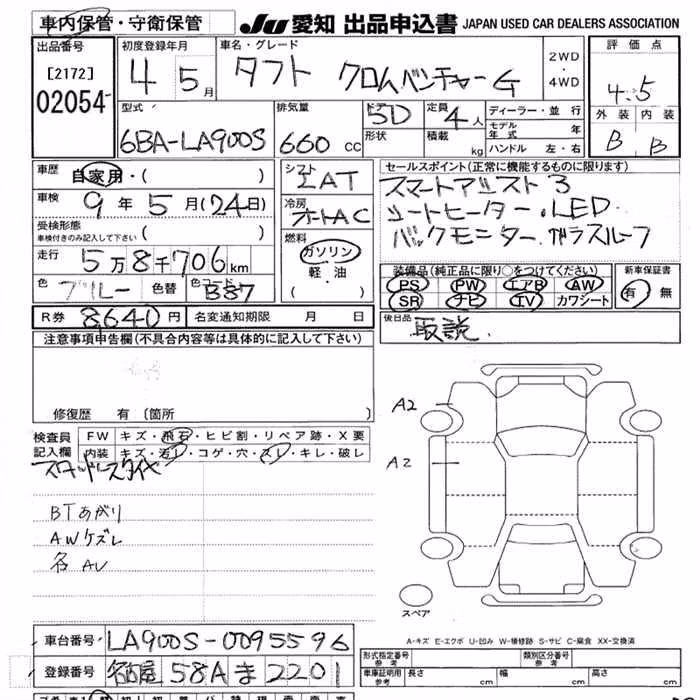 車内保管・守衛保管
JU 愛知 出品申込書 JAPAN USED CAR DEALERS ASSOCIATION
出品番号 [2172] 02054
初度登録年月 4 5月
車名・グレード タフト クロムベンチャーG
2WD・4WD
評価点 4.5
外装 B 内装 B
型式 6BA-LA900S
排気量 660 cc
ドア 5D 形状
定員 4人 積載 kg
ディーラー・並行
モデル年式 年
ハンドル 左・右
車歴 自家用・( )
車検 9年5月(24日)
受検形態 車検付きのみ記入して下さい ( )
走行 5万8千706km
色 ブルー 色替 色コード B87
シフト IAT
冷房 オートAC
燃料 ガソリン・軽・油・( )
セールスポイント(正常に機能するものに限ります)
スマートアシスト3
シートヒーター.LED.
バックモニター.ガラスルーフ
装備品(純正品に限り○をつけてください)
PS PW エアB AW
SR ナビ TV カワシート
新車保証書 有・無
R券 8,640円 名変通知期限 月 日
後日品 取説.
注意事項申告欄(不具合内容等は具体的に記入して下さい)
修復歴 有〔箇所 〕
検査員記入欄
FW キズ・飛石・ヒビ割・リペア跡・X要
内装 キズ・汚レ・コゲ・穴・スレ・キレ・破レ
スタッドレスタイヤ
BTあがり
AWケズレ
名AU
A2
A2
スペア
A-キズ E-エクボ U-凹み W-補修跡 S-サビ C-腐食 XX-交換済
車台番号 LA900S-0095596
登録番号 名古屋 58A ま 2201
形式指定番号 参考 類別区分番号 参考
車庫証明用 参考 長さ cm 幅 cm 高さ cm